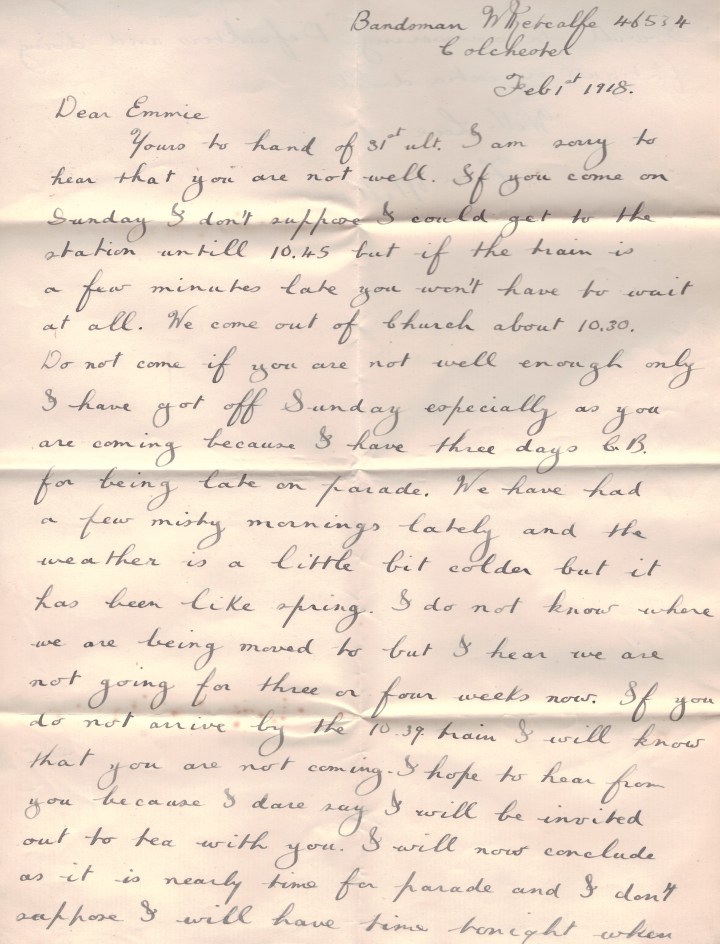 Bandsman W Metcalfe 46534
Colchester
Feb 1st 1918.
Dear Emmie
Yours to hand of 31st ult. I am sorry to
hear that you are not well. If you come on
Sunday I don't suppose I could get to the
station untill 10.45 but if the train is
a few minutes late you won't have to wait
at all. We come out of Church about 10.30.
Do not come if you are not well enough only
I have got off Sunday especially as you
are coming because I have three days C.B.
for being late on parade. We have had
a few misty mornings lately and the
weather is a little bit colder but it
has been like spring. I do not know where
we are being moved to but I hear we are
not going for three or four weeks now. If you
do not arrive by the 10.39 train I will know
that you are not coming. I hope to hear from
you because I dare say I will be invited
out to tea with you. I will now conclude
as it is nearly time for parade and I don't
suppose I will have time tonight when